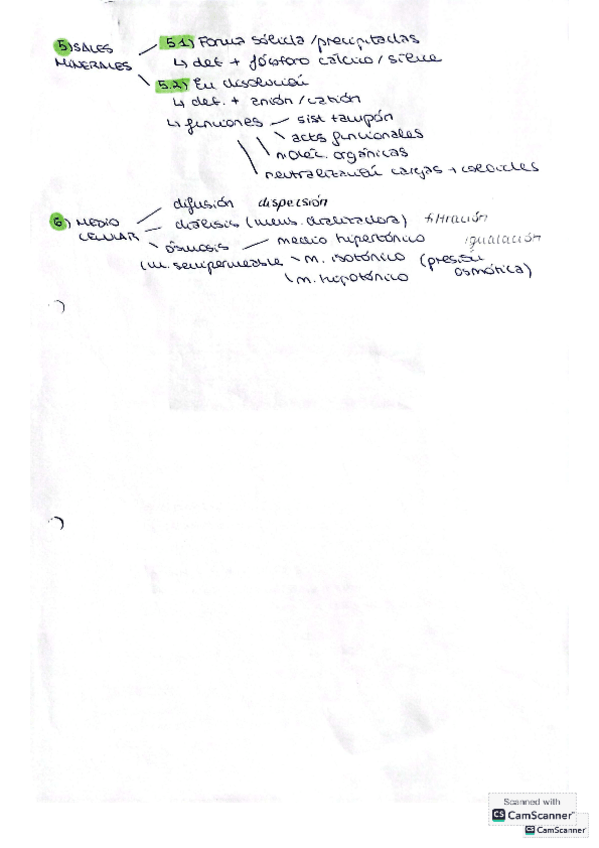 5) SALES MINERALES
5.1) Forma sólida / precipitadas
↳ def + fósforo cálcico / sílice
5.2) En disolución
↳ def. + anión / catión
↳ funciones — sist tampón
acts funcionales
molec. orgánicas
neutralización cargas + coloides
6) MEDIO CELULAR
difusión dispersión
diálisis (mem. dializadora) filtración
ósmosis — medio hipertónico igualación
(m. semipermeable m. isotónico (presión osmótica)
m. hipotónico
Scanned with
CS CamScanner
CS CamScanner